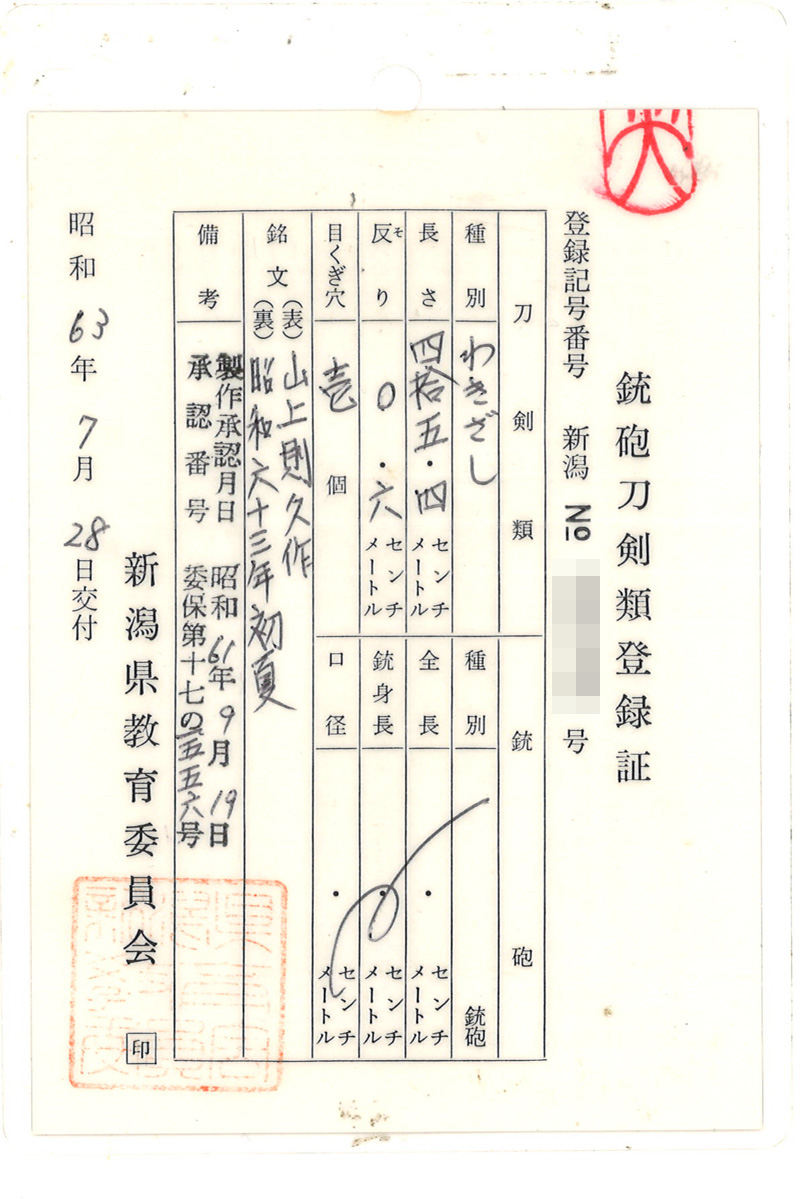 銃砲刀剣類登録証
登録記号番号 新潟 No 号
刀剣類
種別 わきざし
長さ 四拾五・四 センチメートル
反り そ 〇・六 センチメートル
目くぎ穴 壱 個
銘文 (表) 山上則久作
(裏) 昭和六十三年初夏
備考 製作承認月日 昭和61年9月19日
承認番号 委保第十七の五五六号
銃砲
種別 銃砲
全長 ・ センチメートル
銃身長 ・ センチメートル
口径 ・ センチメートル
昭和63年7月28日交付
新潟県教育委員会 印